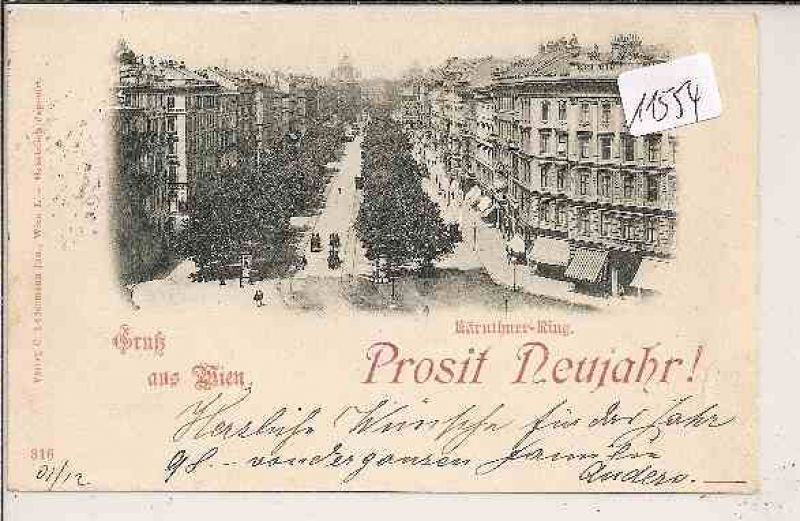 11554
Verlag C. Ledermann jun., Wien I.
Kärnthner-Ring.
Gruß
aus Wien
Prosit Neujahr!
Herzliche Wünsche für das Jahr
98. – von der ganzen Familie
Anders. –
816
01/12